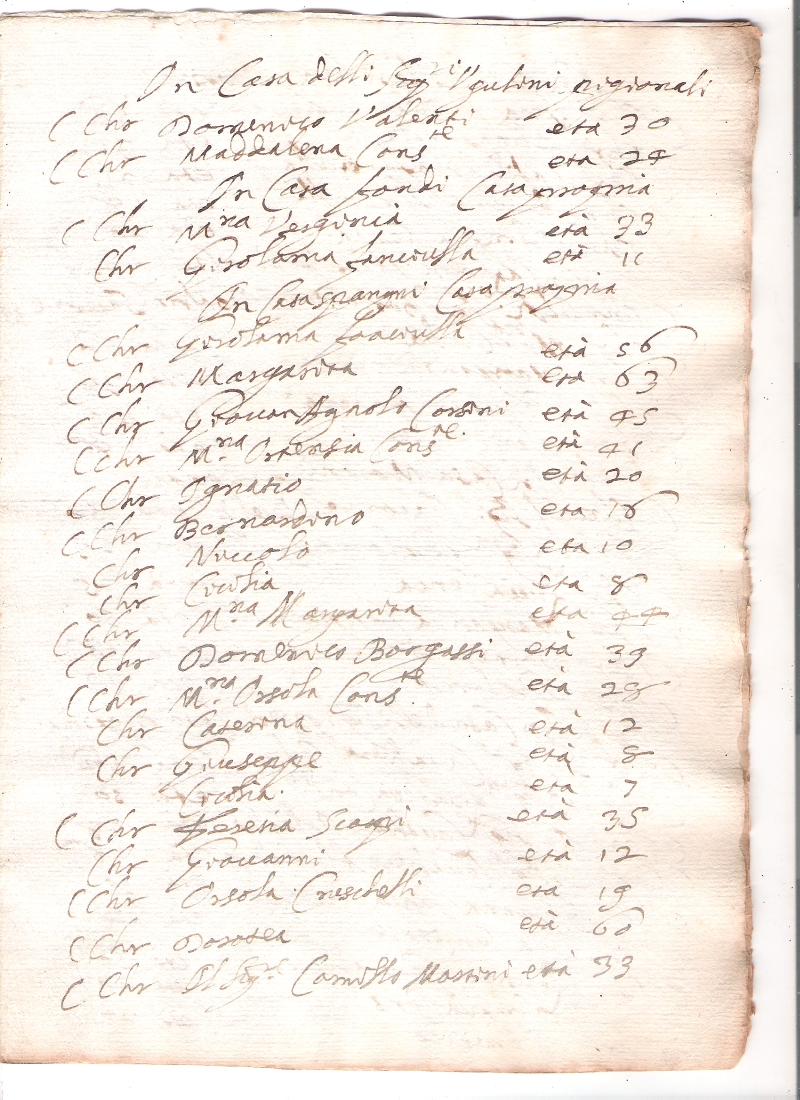 In Casa delli Sig.ri Ugulini pigionali
C Chr Domenico Valenti età 30
C Chr Maddalena Cons.te età 24
In Casa fondi Casa propria
C Chr M.ra Verginia età 33
Chr Girolama fanciulla età 11
In Casa Casa propria
C Chr Girolama fanciulla età 56
C Chr Margarita età 63
C Chr Giovan Agnolo Corsini età 45
C Chr M.na Ortensia Cons.te età 41
C Chr Ignatio età 20
C Chr Bernardino età 16
Chr Niccolò età 10
Chr Cicilia età 8
C Chr M.na Margarita età 44
C Chr Domenico Borgassi età 39
C Chr M.na Orsola Cons.te età 28
Chr Caterina età 12
Chr Giuseppe età 8
Cicilia età 7
C Chr Teresia età 35
Chr Giovanni età 12
C Chr Orsola età 19
C Chr Dorotea età 60
C Chr Il Sig.re Camillo Mastini età 33